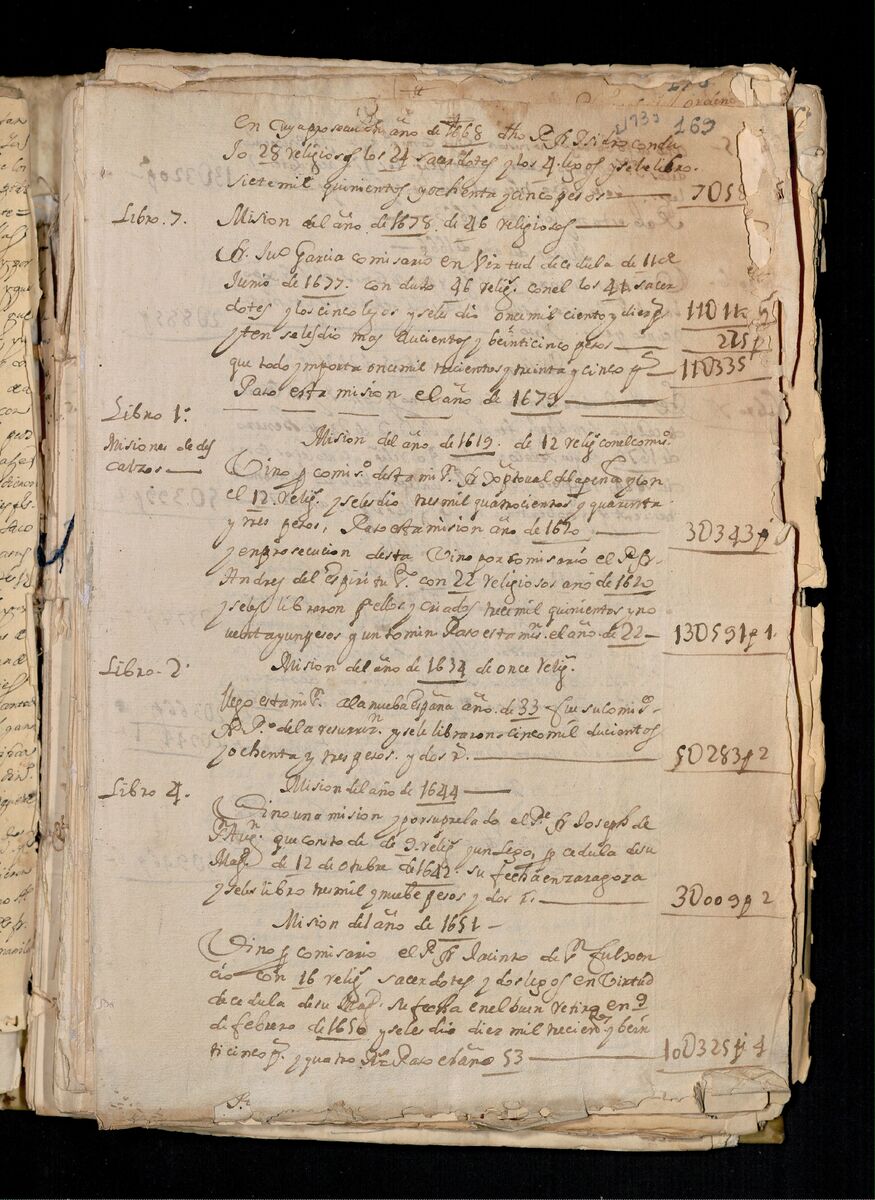 169
En cuya prosecucion año de 1668 dho P. fr Isidro condu
Jo 28 religiosos los 24 sacerdotes y los 4 legos y se le libro.
siete mil quinientos y ochenta y cinco pesos — 7058
Libro. 7. Mision del año de 1678 de 46 religiosos —
fr. Juº Garcia comisario en Virtud de cedula de 11 de
Junio de 1677. condujo 46 religˢ con el los 41 sacer
dotes y los cinco legos y se le dio once mil ciento y diez pˢ — 11011
yten se les dio mas ducientos y beinticinco pesos — 225 p
que todo ymporta once mil trecientos y treinta y cinco pˢ — 110335
Paso esta mision el año de 1679 —
Libro 1º
Misiones de des
calzos —
Mision del año de 1619. de 12 religˢ con el comisº.
Vino p comisº desta miⁿ fr Xpˢtoval de la peña y con
el 12. religˢ y se les dio tres mil quatrocientos y quarenta
y tres pesos, Paso esta mision año de 1620 — 30343 pˢ
y en prosecucion desta Vino por comisario el P. fr
Andres del Espiritu Sᵗᵒ con 22 religiosos año de 1620
y se les libraron p ellos y criados trece mil quinientos y no
venta y un pesos y un tomin Paso esta misⁿ. el año de 22 — 130591 p 1
Libro. 2º
Mision del año de 1634 de once religˢ.
llego esta miⁿ. a la nueba España año de 33 fue su comisº
fr Pº de la resurrⁿ. y se le libraron cinco mil ducientos
y ochenta y tres pesos. y dos rˢ. — 50283 p 2
Libro 4.
Mision del año de 1644 —
Vino una mision y por su prelado el Pᵉ fr Joseph de
Sⁿ Augⁿ. que consto de 9 religˢ y un Lego, p cedula de su
Magᵈ. de 12 de otubre de 1642. su fecha en zaragoza
y se les libro tres mil y nuebe pesos y dos rˢ. — 30009 p 2
Mision del año de 1651 —
Vino p comisario el P. fr Jacinto de Sⁿ Fulxen
cio con 16 religˢ sacerdotes y dos legos en Virtud
de cedula de su Magᵈ. su fecha en el buen retiro en 9
de febrero de 1650 y se les dio diez mil trecienᵗᵒˢ y bein
ti cinco pˢ. y quatro rrˢ. Paso el año 53 — 100325 pˢ 4